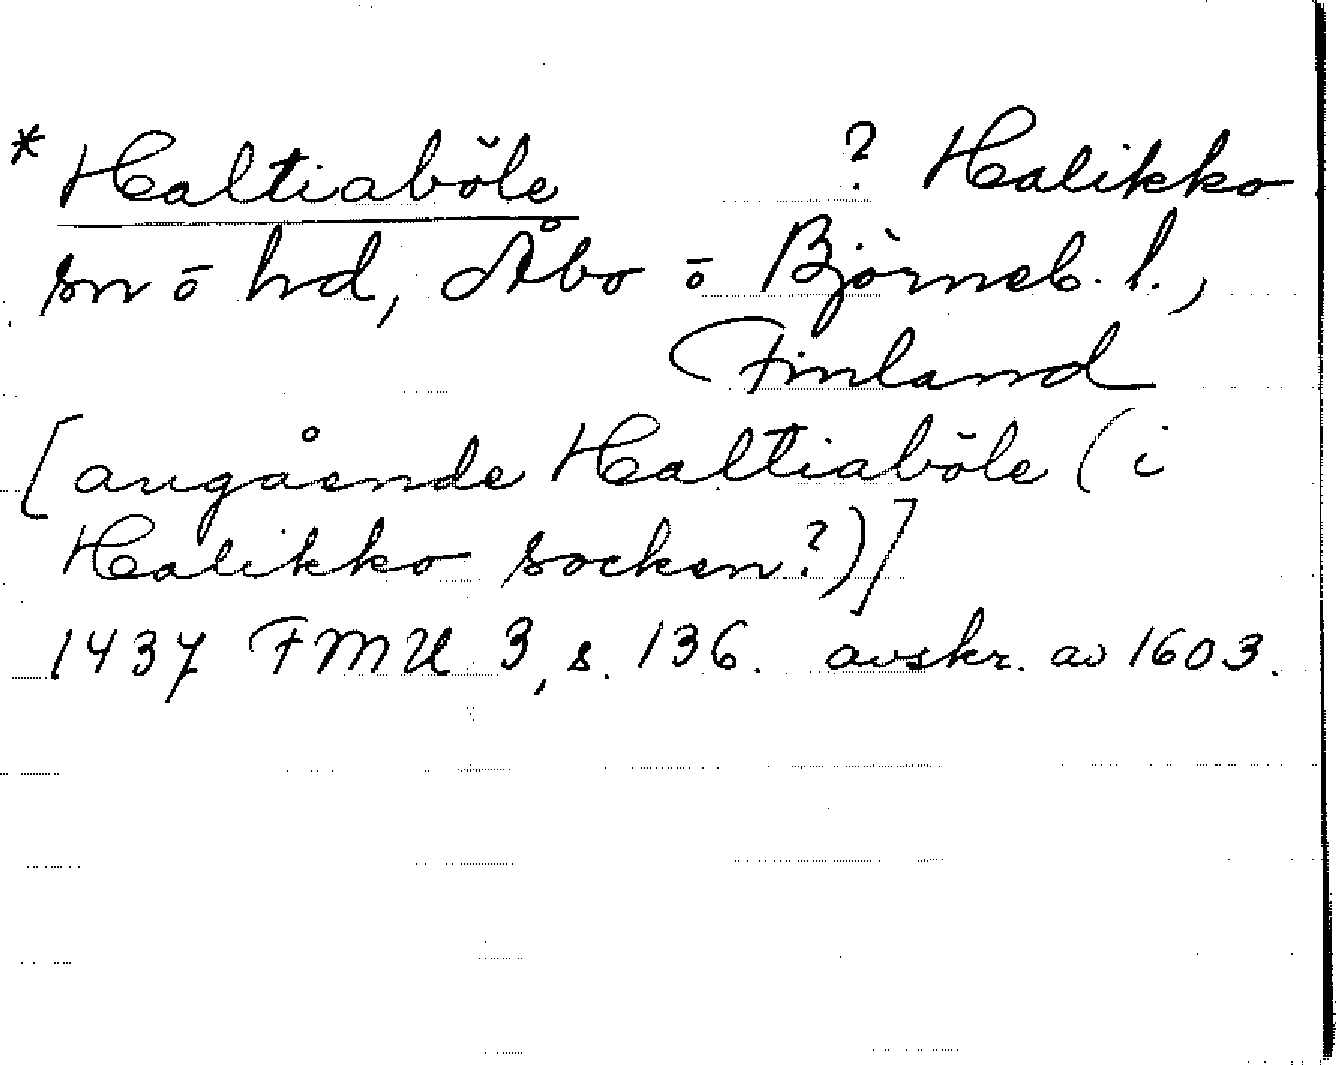 * Haltiaböle ? Halikko
sn ō hd, Åbo ō Björneb. l.,
Finland
[angående Haltiaböle (i
Halikko socken?)]
1437 FMU 3, s. 136. avskr. av 1603.